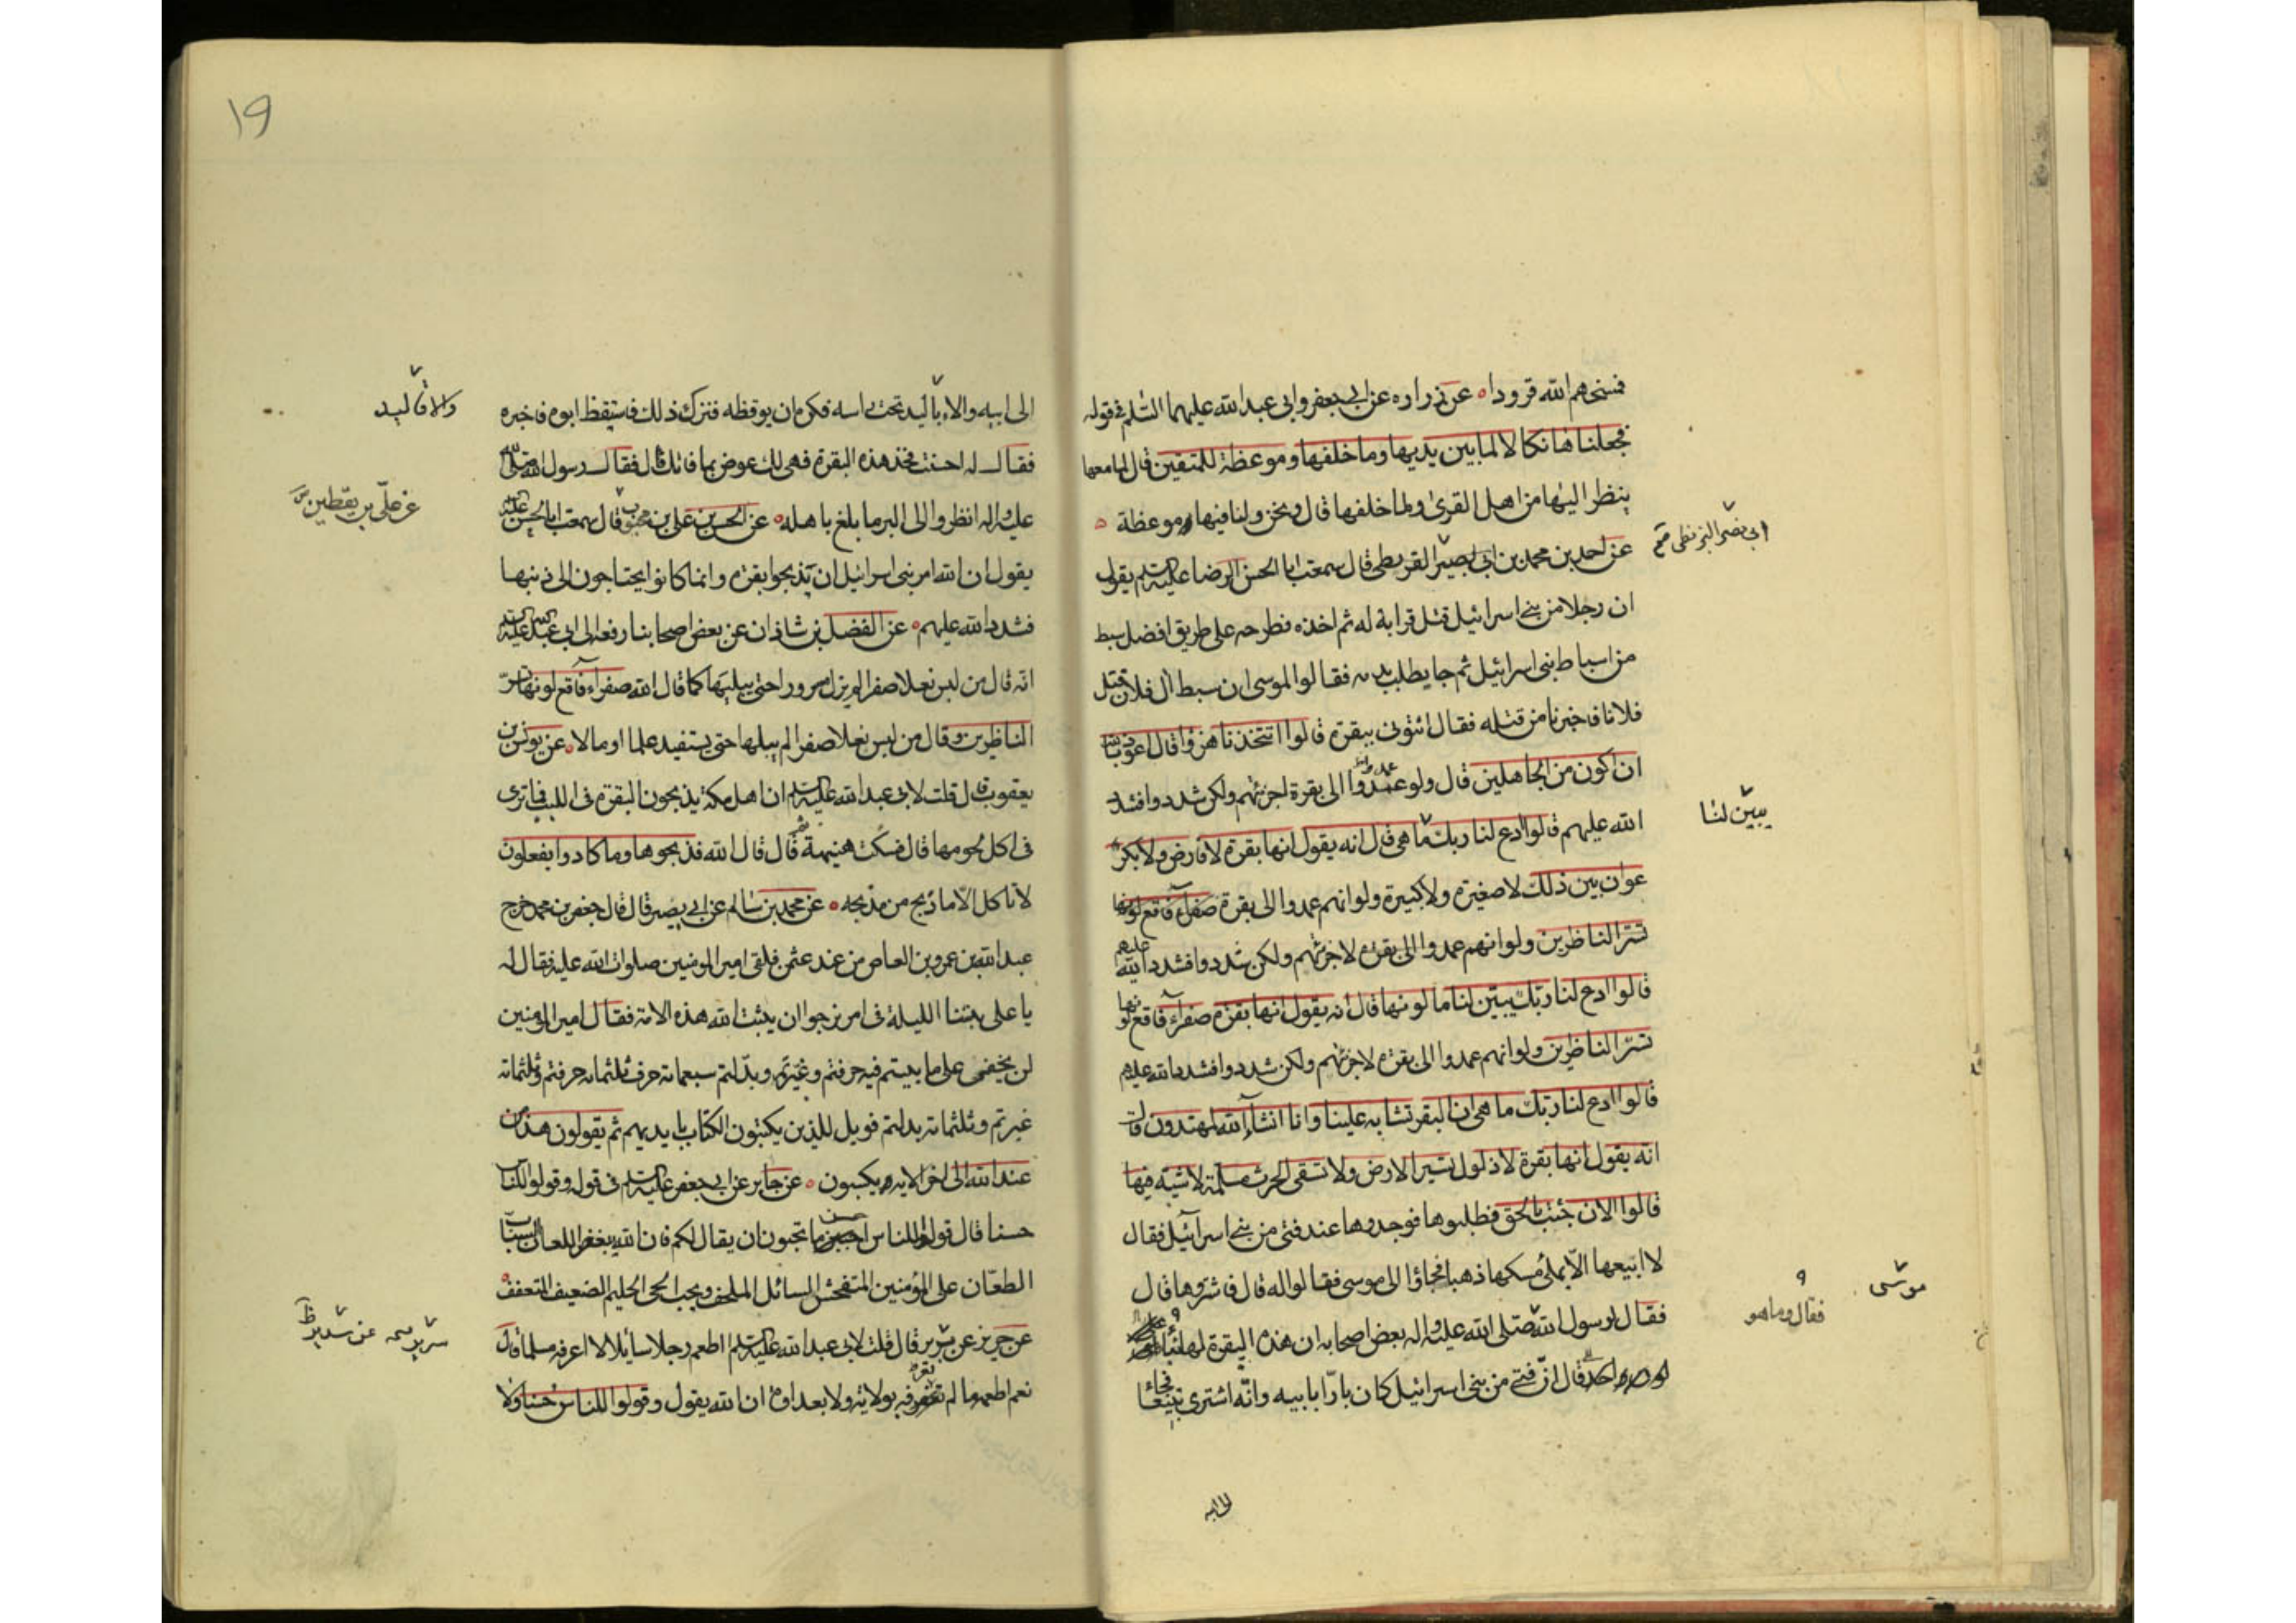 فمسخهم الله قرودا عن زراره عن ابي جعفر وابي عبد الله عليهما السلم في قوله
فجعلناها نكالا لما بين يديها وما خلفها وموعظة للمتقين قال لما معها
ينظر اليها من اهل القرى ولما خلفها قال ونحن ولنا فيها موعظة
ابي نصر البزنطي
عن احمد بن محمد بن ابي بصير القريطي قال سمعت ابا الحسن الرضا عليه السلم يقول
ان رجلا من بني اسرائيل قتل قرابة له ثم اخذه فطرحه على طريق افضل سبط
من اسباط بني اسرائيل ثم جا يطلب بدمه فقالوا لموسى ان سبط ال فلان قتل
فلانا فاخبرنا من قتله فقال ائتوني ببقرة قالوا اتتخذنا هزوا قال اعوذ بالله
ان اكون من الجاهلين قال ولو عمدوا الى بقرة اجزئتهم ولكن شددوا فشدد
يبين لنا
الله عليهم قالوا ادع لنا ربك ما هي قال انه يقول انها بقرة لا فارض ولا بكر
عوان بين ذلك لا صغيرة ولا كبيرة ولو انهم عمدوا الى بقرة صفرآء فاقع لونها
تسر الناظرين ولو انهم عمدوا الى بقرة لاجزئتهم ولكن شددوا فشدد الله عليهم
قالوا ادع لنا ربك يبين لنا ما لونها قال انه يقول انها بقرة صفرآء فاقع لونها
تسر الناظرين ولو انهم عمدوا الى بقرة لاجزئتهم ولكن شددوا فشدد الله عليهم
قالوا ادع لنا ربك ما هي ان البقر تشابه علينا وانا انشآء الله لمهتدون قال
انه يقول انها بقرة لا ذلول تثير الارض ولا تسقى الحرث مسلمة لاشيه فيها
قالوا الان جئت بالحق فطلبوها فوجدوها عند فتى من بني اسرآئيل فقال
لا ابيعها الا بملئ مسكها ذهبا فجاؤا الى موسى فقالوا له قال فاشتروها قال
موسى
فقال وما هو
فقال لرسول الله صلى الله عليه واله بعض اصحابه ان هذه البقرة لها نبأ
قال ان فتى من بني اسرائيل كان بارا بابيه وانه اشترى تبيعا فجاء
الى ابيه
١٩
الى ابيه والاقاليد تحت راسه فكره ان يوقظه فترك ذلك فاستيقظ ابوه فاخبره
والاقاليد
فقال له احسنت فخذ هذه البقرة فهي لك عوض بما فاتك قال فقال رسول الله صلى الله
عليه واله انظروا الى البر ما بلغ باهله عن الحسن بن علي بن محبوب قال سمعت ابا الحسن عليه السلم
عن علي بن يقطين
يقول ان الله امر بني اسرائيل ان يذبحوا بقرة وانما كانوا يحتاجون الى ذنبها
فشدد الله عليهم عن الفضل بن شاذان عن بعض اصحابنا رفعه الى ابي عبد الله عليه السلم
انه قال من لبس نعلا صفرا لم يزل مسرورا حتى يبليها كما قال الله صفرآء فاقع لونها تسر
الناظرين وقال من لبس نعلا صفرا لم يبلها حتى يستفيد علما او مالا عن يونس بن
يعقوب قال قلت لابي عبد الله عليه السلم ان اهل مكة يذبحون البقرة في اللبب فما ترى
في اكل لحومها قال فسكت هنيهة ثم قال قال الله فذبحوها وما كادوا يفعلون
لا تاكل الا ما ذبح من مذبحه عن محمد بن سالم عن ابي بصير قال قال جعفر بن محمد خرج
عبد الله بن عمرو بن العاص من عند عثمن فلقى امير المومنين صلوات الله عليه فقال له
يا على بيتنا الليلة في امر نرجوا ان يثبت الله هذه الامة فقال امير المومنين
لن يخفى على ما بيتم فيه حرفتم وغيرتم وبدلتم سبعمائه حرف ثلثمائه حرفتم وثلثمائة
غيرتم وثلثمائه بدلتم فويل للذين يكتبون الكتاب بايديهم ثم يقولون هذا من
عند الله الى اخر الايه يكسبون عن جابر عن ابي جعفر عليه السلم في قوله وقولوا للناس
حسنا قال قولوا للناس احسن ما تحبون ان يقال لكم فان الله يبغض اللعان السباب
الطعان على المؤمنين المتفحش السائل الملحف ويحب الحي الحليم الضعيف المتعفف
عن حريز عن برير قال قلت لابي عبد الله عليه السلم اطعم رجلا سايلا لا اعرفه مسلما قال
عن سدير
نعم اطعمه ما لم تعرفه بولاية ولا بعداوة ان الله يقول وقولوا للناس حسنا ولا